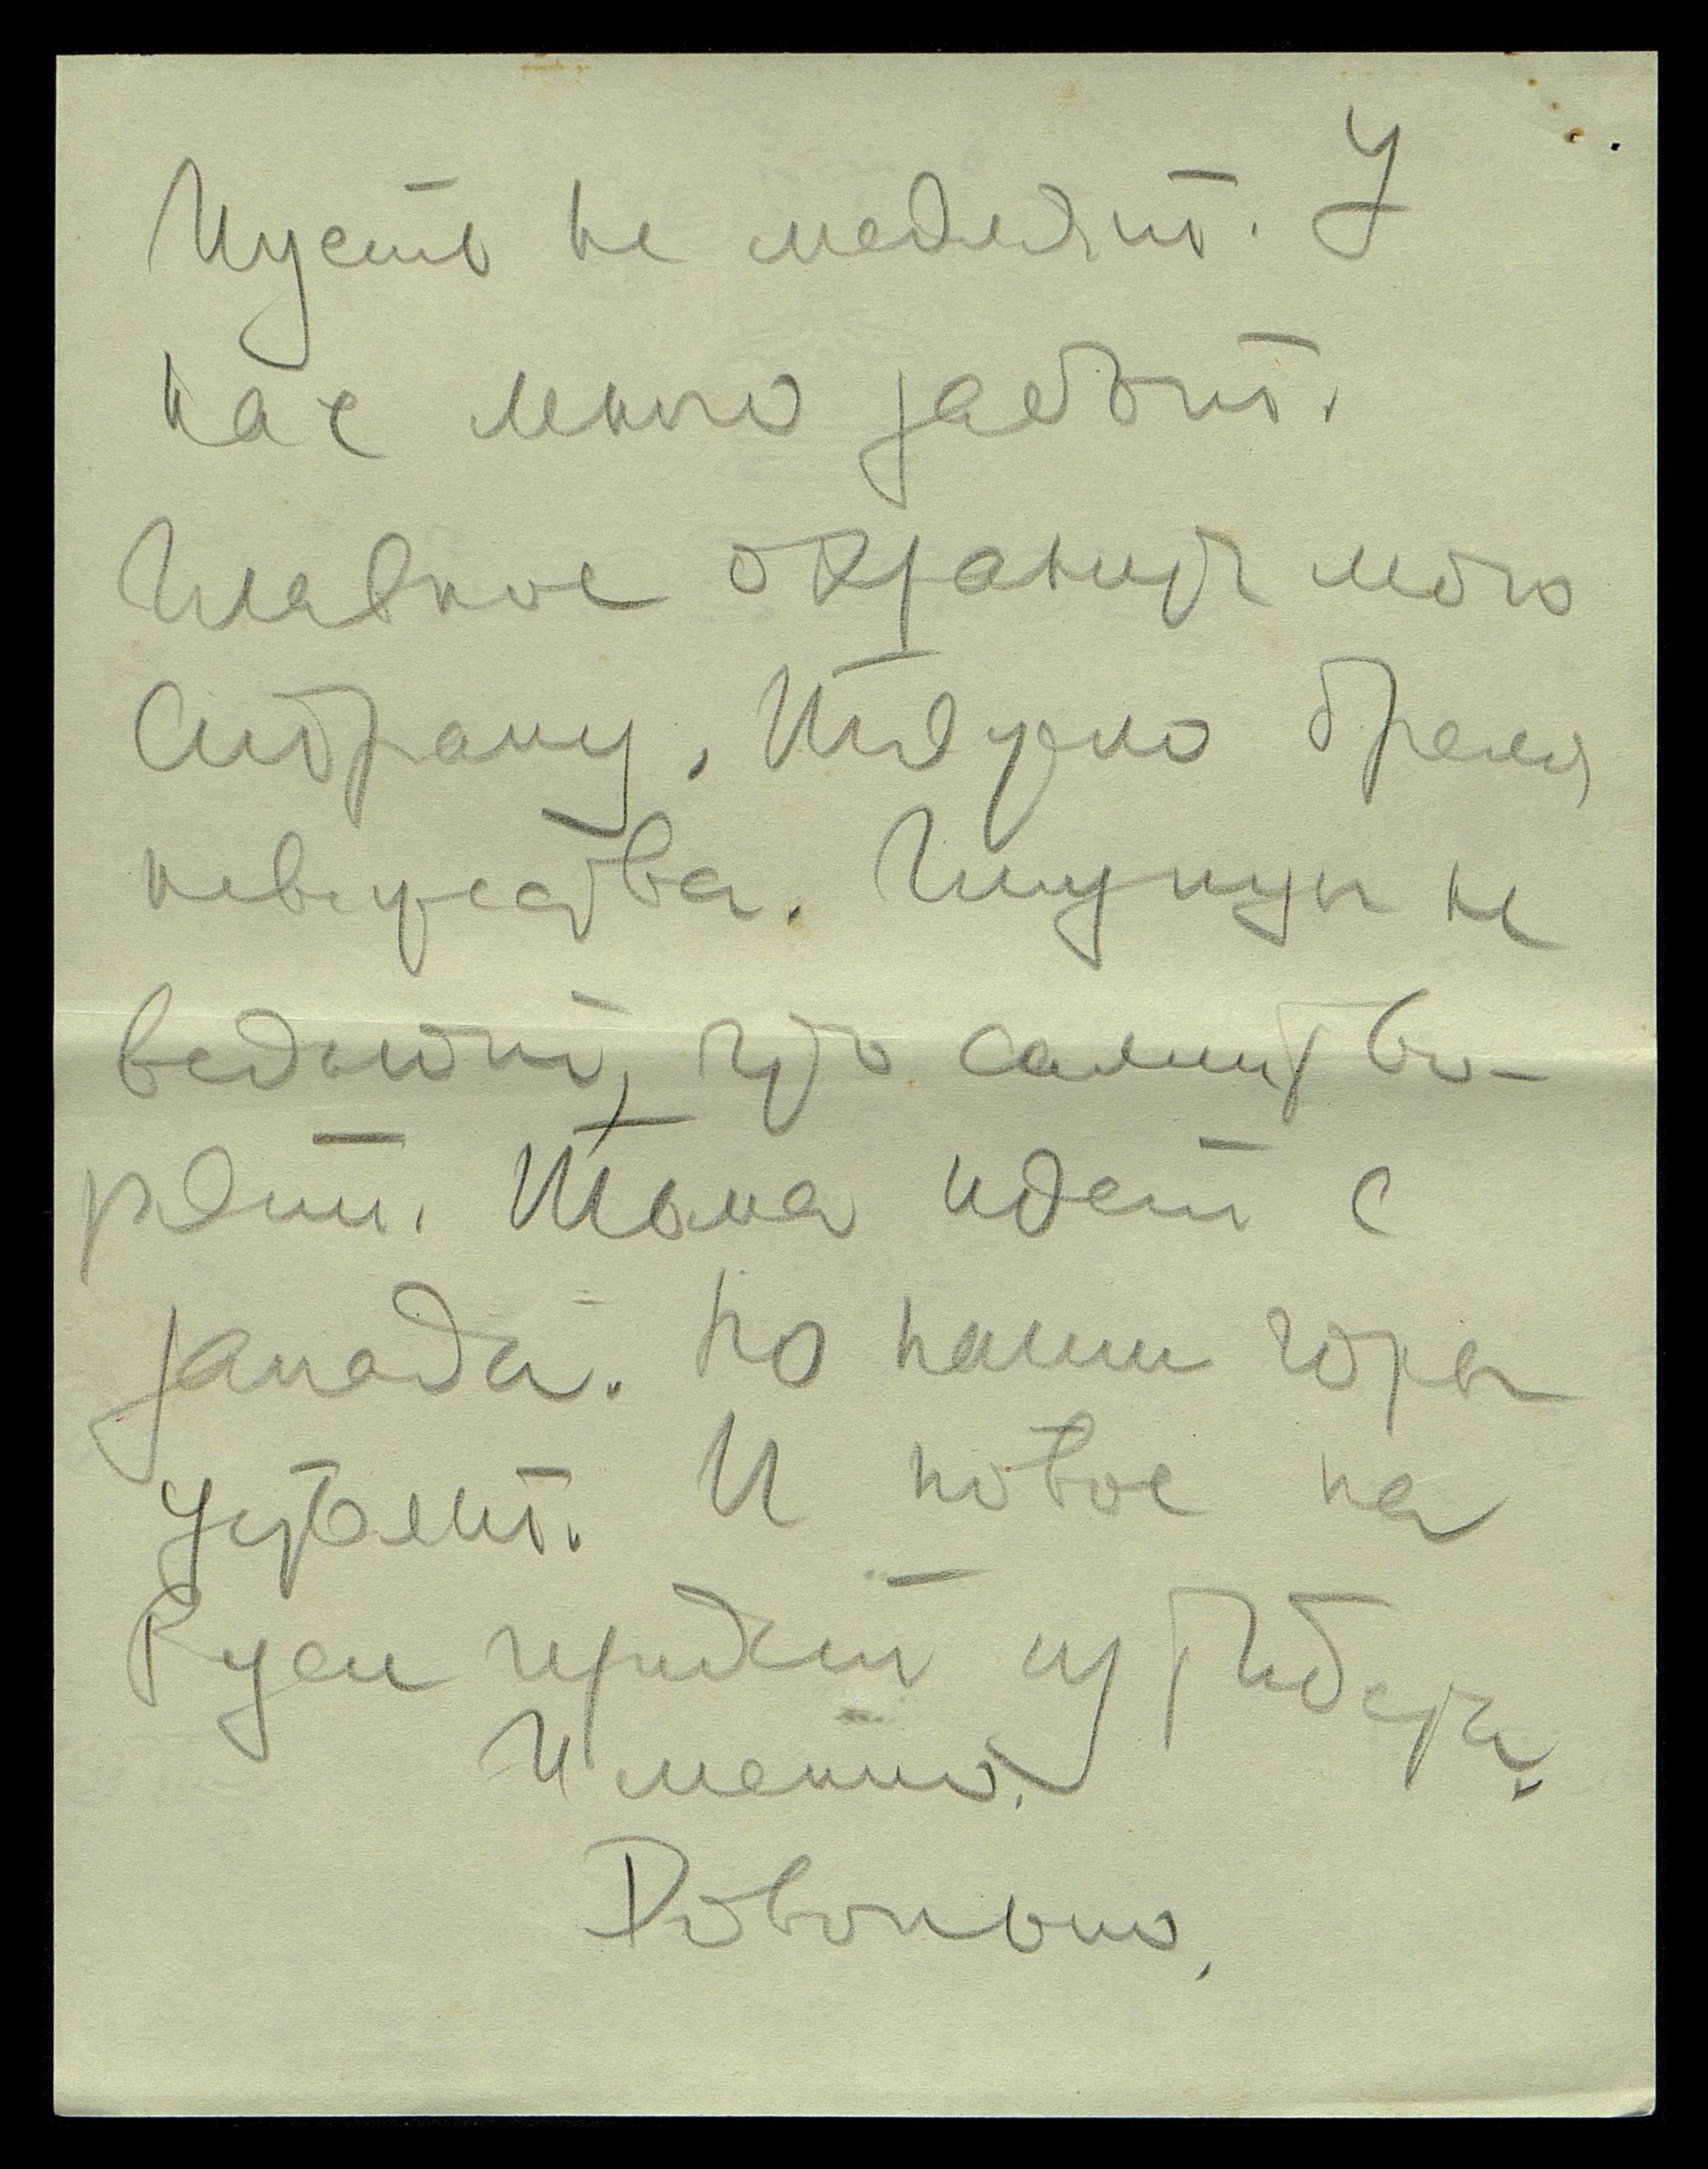 Пусть не медлят. У
нас много забот.
Главное охранить мою
страну. Тяжко бремя
невежества. Глупцы не
ведают, что сами тво-
рят. Тьма идет с
запада. Но наши горы
устоят. И новое на
Руси придет из Тибета.
Именно.
Довольно.